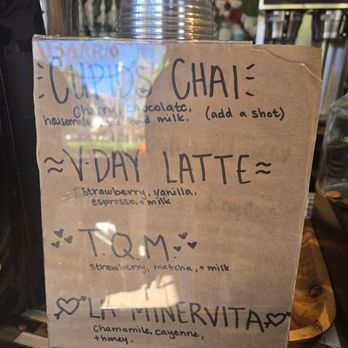 BARRIO
CUPIDS CHAI
Cherry, chocolate,
housemade and milk. (add a shot)
≈V-DAY LATTE≈
Strawberry, vanilla,
espresso, + milk
T.Q.M.
strawberry, matcha, + milk
LA MINERVITA
Chamomile, cayenne,
+ honey.